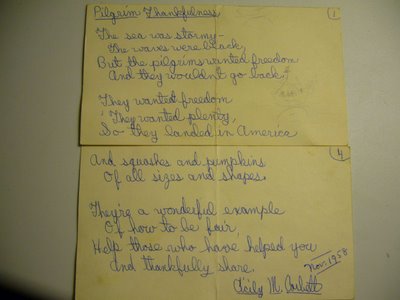 Pilgrim Thankfulness
1
The sea was stormy-
The waves were black,
But the pilgrims wanted freedom
And they wouldn't go back.
They wanted freedom
They wanted plenty,
So they landed in America
4
And squashes and pumpkins
Of all sizes and shapes.
They're a wonderful example
Of how to be fair,
Help those who have helped you
And thankfully share.
Cicily M. Corbett
Nov. 1958